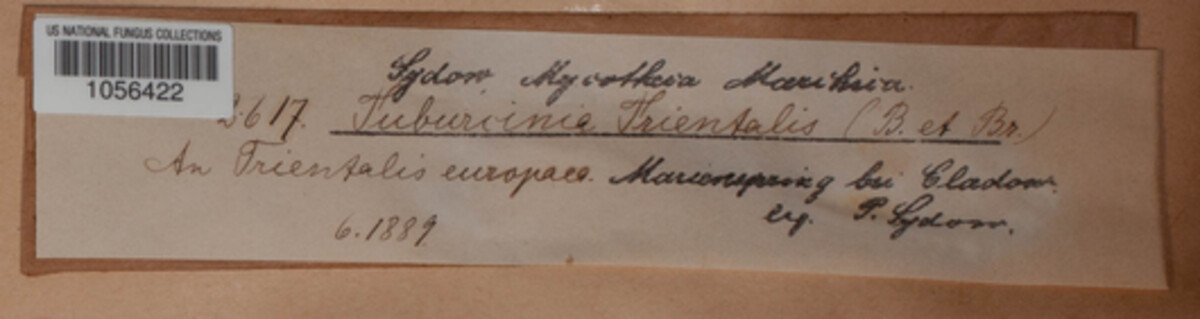 US NATIONAL FUNGUS COLLECTIONS
1056422
Sydow, Mycotheca Marchica.
2617. Tuburcinia Trientalis (B. et Br.)
An Trientalis europaea. Marienspring bei Cladow.
leg. P. Sydow.
6.1889